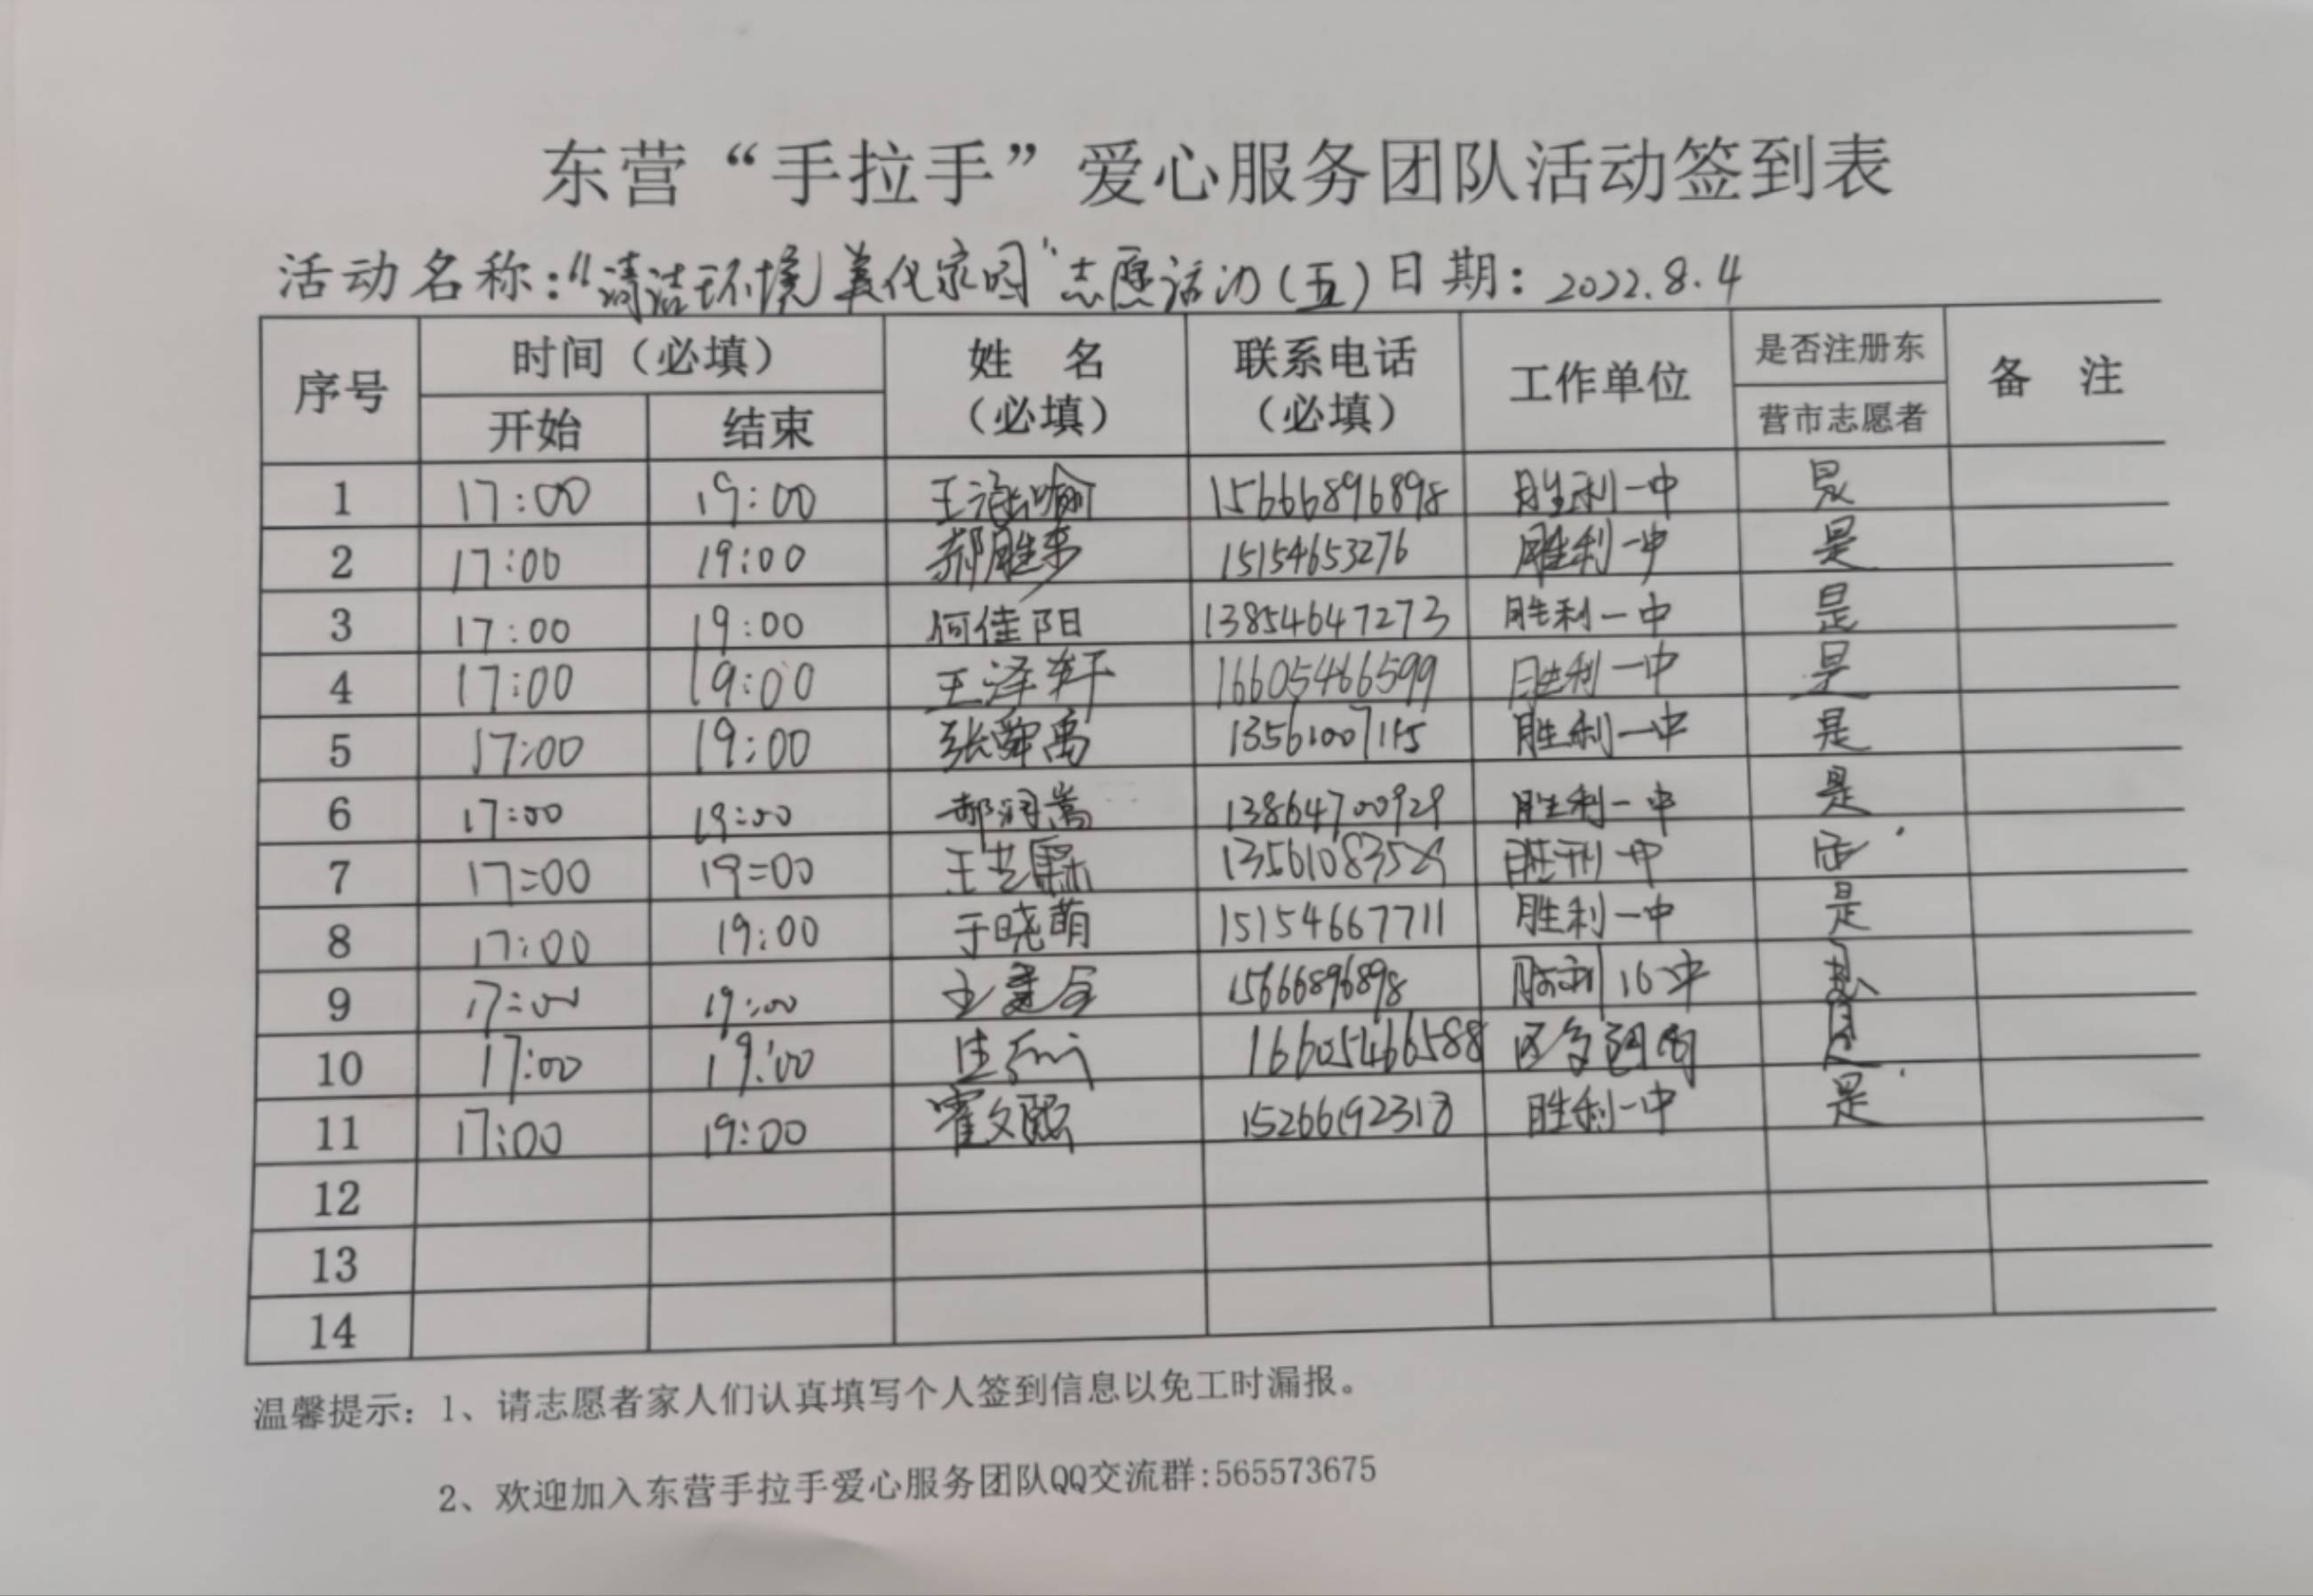 东营“手拉手”爱心服务团队活动签到表
活动名称：“清洁环境 美化家园”志愿活动（五）日期：2022.8.4
序号 时间（必填） 姓 名（必填） 联系电话（必填） 工作单位 是否注册东营市志愿者 备 注
开始 结束
1 17:00 19:00 王 15666896898 胜利一中 是
2 17:00 19:00 郝胜来 15154653276 胜利一中 是
3 17:00 19:00 何佳阳 13854647273 胜利一中 是
4 17:00 19:00 王泽轩 16605466599 胜利一中 是
5 17:00 19:00 张舜禹 13561007115 胜利一中 是
6 17:00 19:00 郝润嵩 13864700929 胜利一中 是
7 17:00 19:00 王 胜利一中
8 17:00 19:00 于晓萌 15154667711 胜利一中 是
9 17:00 19:00 15666896898
10 17:00 19:00 16605466588 是
11 17:00 19:00 霍文熙 胜利一中 是
12
13
14
温馨提示：1、请志愿者家人们认真填写个人签到信息以免工时漏报。
2、欢迎加入东营手拉手爱心服务团队QQ交流群:565573675